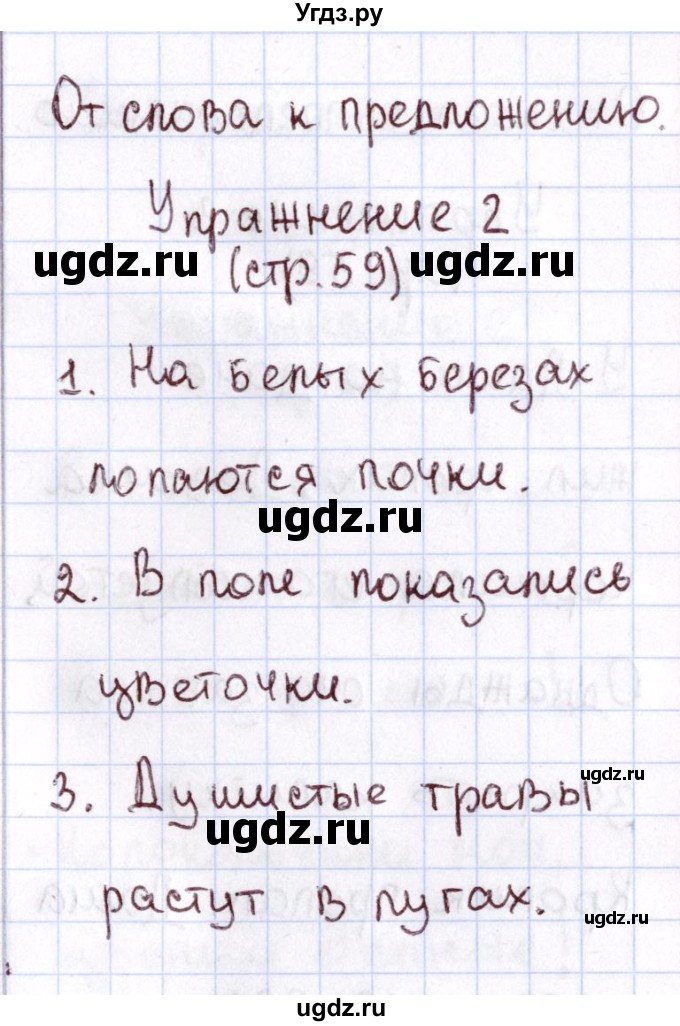 Угдз.ру
От слова к предложению.
Упражнение 2
ugdz.ru (стр.59) ugdz.ru
1. На белых березах
лопаются почки.
ugdz.ru
2. В поле показались
цветочки.
ugdz.ru
3. Душистые травы
ugdz.ru
растут в лугах.
ugdz.ru
ugdz.ru